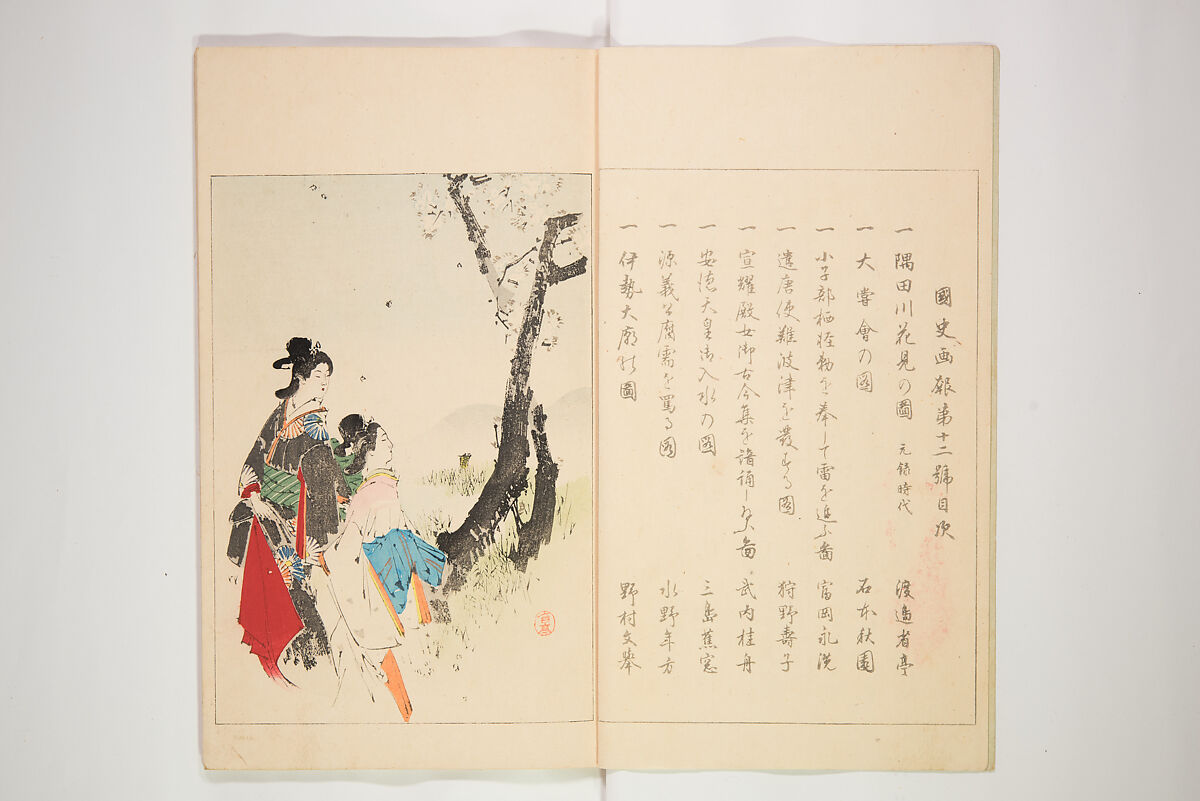 國史画報第十二號目次
一 隅田川花見の圖 元録時代 渡邉省亭
一 大嘗會の圖 石本秋園
一 小子部栖軽勅を奉して雷を追ふ圖 富岡永洗
一 遣唐使難波津を發する圖 狩野壽子
一 宣耀殿女御古今集を諳誦し 圖 武内桂舟
一 安徳天皇御入水の圖 三島蕉窓
一 源義公腐儒を罵る圖 水野年方
一 伊勢大廟の圖 野村文挙
省亭